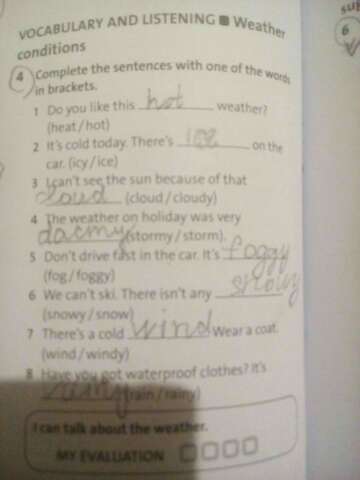 VOCABULARY AND LISTENING ■ Weather
conditions
4 Complete the sentences with one of the words
in brackets.
1 Do you like this hot weather?
(heat / hot)
2 It's cold today. There's ice on the
car. (icy / ice)
3 I can't see the sun because of that
cloud (cloud / cloudy)
4 The weather on holiday was very
(stormy / storm).
5 Don't drive fast in the car. It's foggy
(fog / foggy)
6 We can't ski. There isn't any snowy
(snowy / snow)
7 There's a cold wind. Wear a coat.
(wind / windy)
8 Have you got waterproof clothes? It's
(rain / rainy)
I can talk about the weather.
MY EVALUATION
6